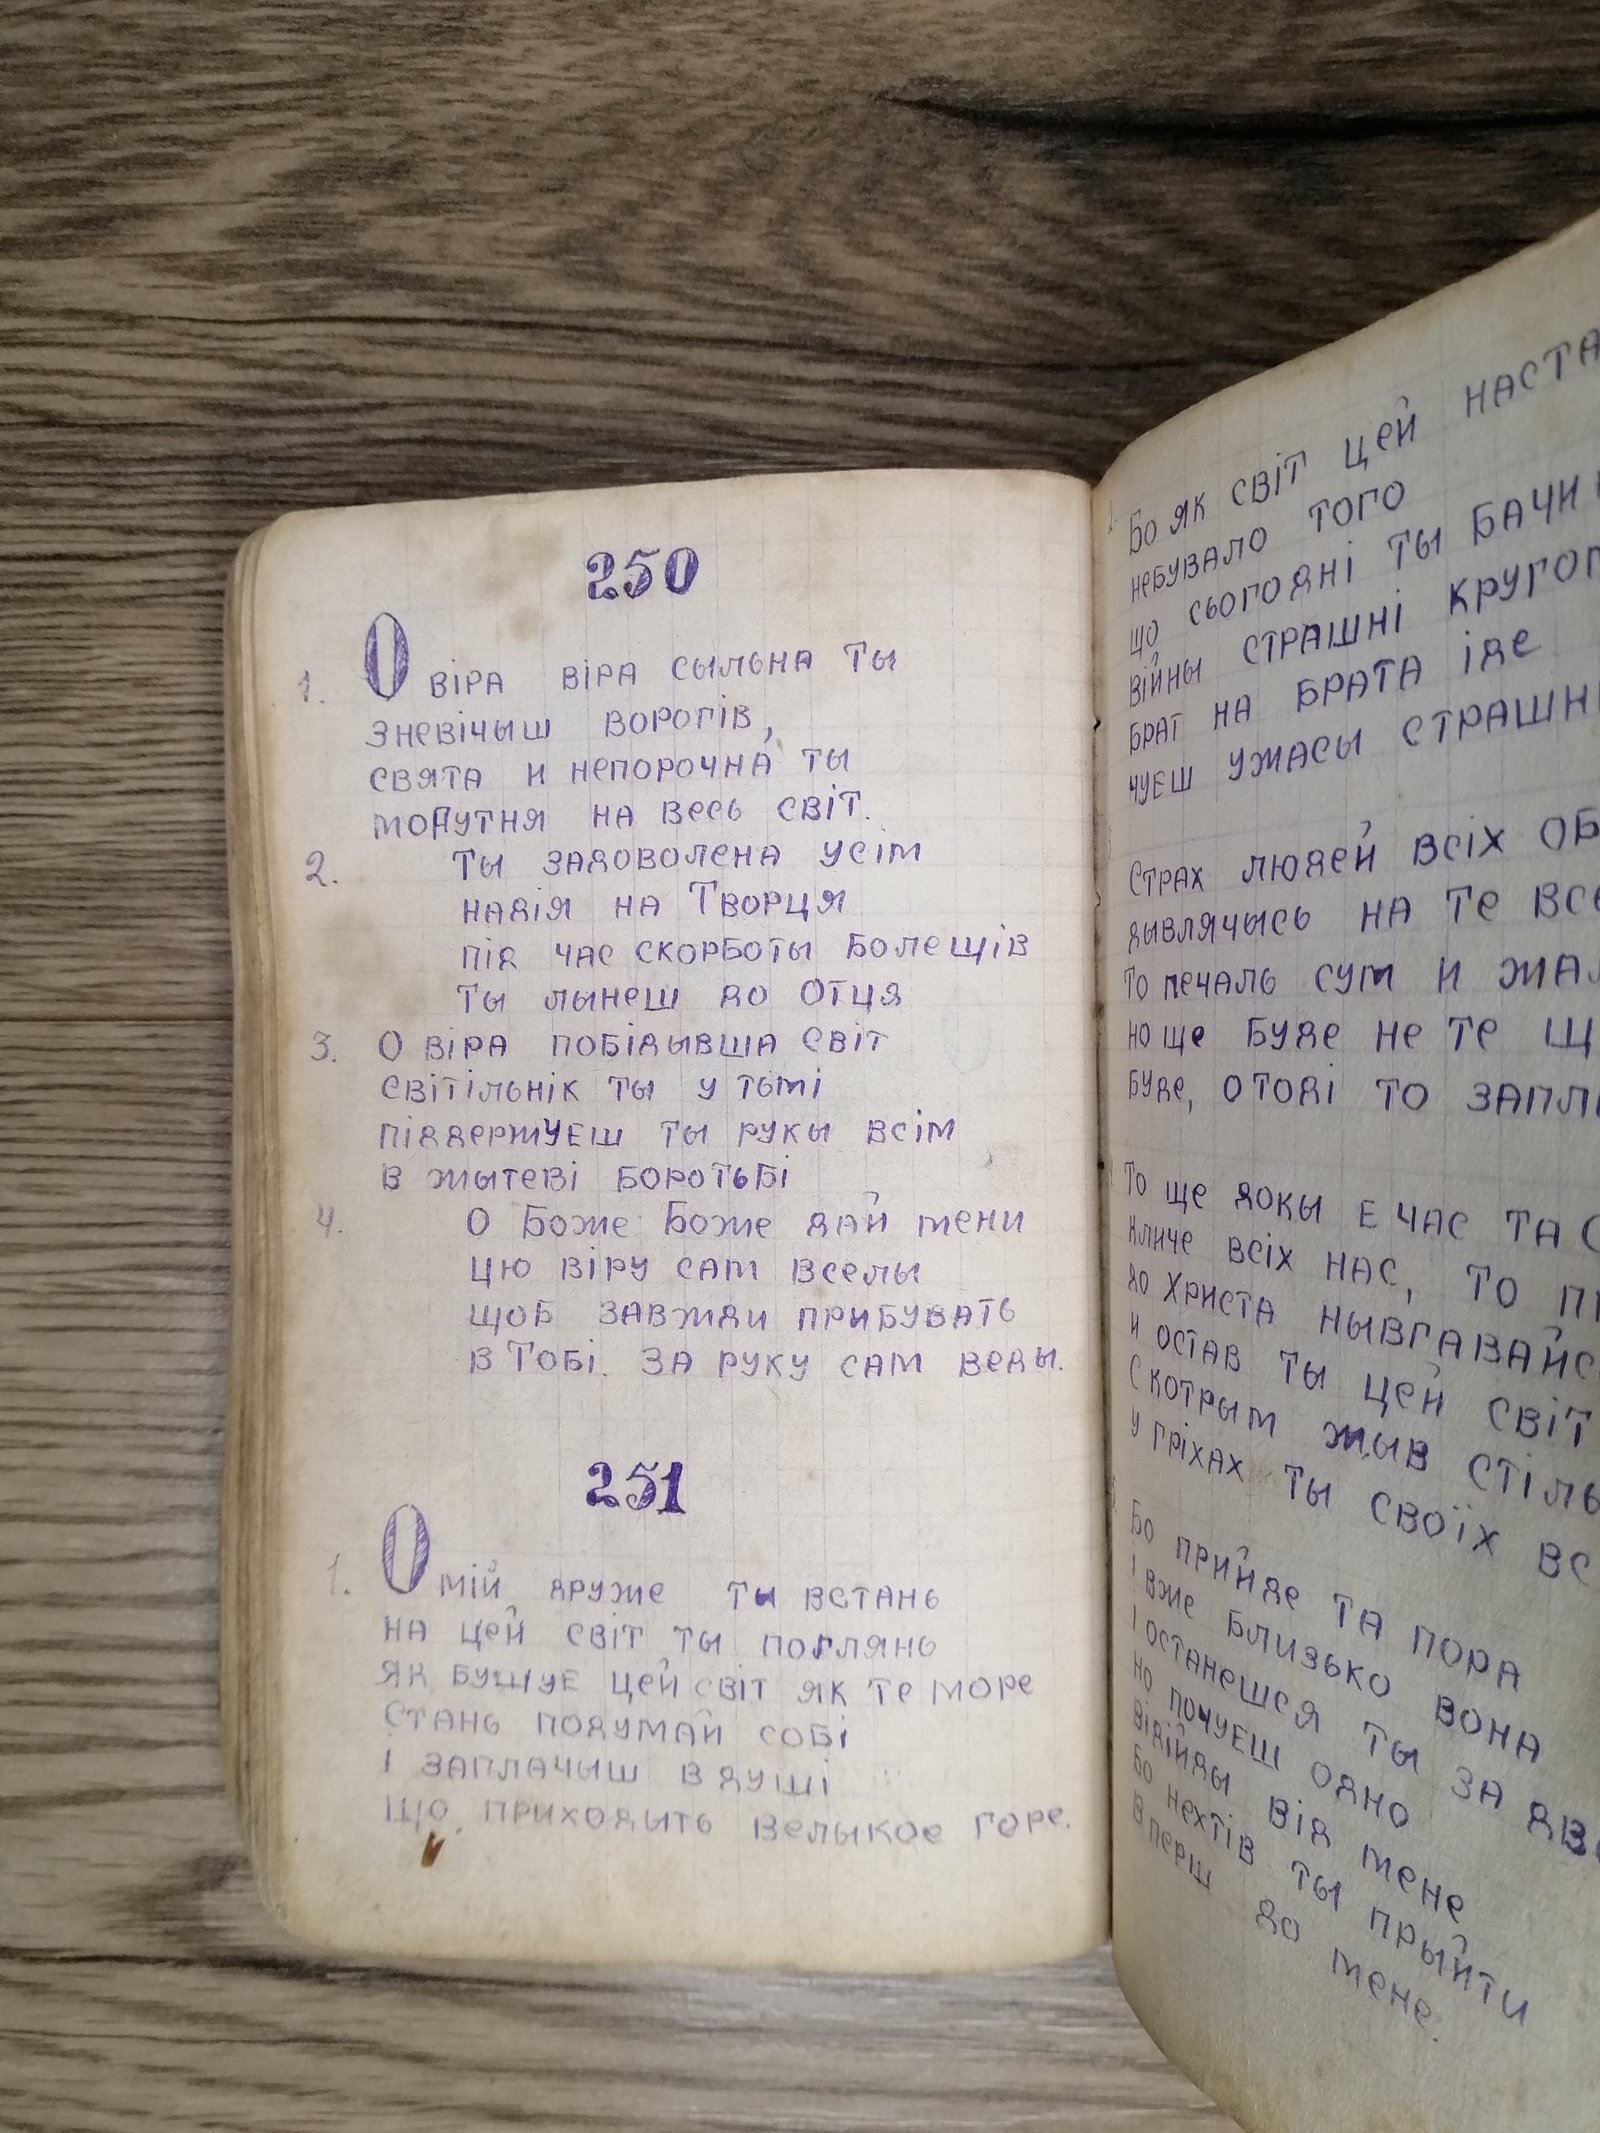 250
1. О віра віра сыльна ты
зневічыш ворогів,
свята и непорочна ты
могутня на весь світ.
2. Ты задоволена усім
надія на Творця
під час скорботы болещів
ты лынеш до Отця
3. О віра побідывша світ
світільнік ты у тьмі
піддержуеш ты рукы всім
в жытеві боротьбі
4. О Боже Боже дай мени
цю віру сам вселы
щоб завжди прибувать
в Тобі. за руку сам веды.
251
1. О мій друже ты встань
на цей світ ты поглянь
як бушує цей світ як те море
Стань подумай собі
і заплачыш в душі
що приходыть велыкое горе.
Бо як світ цей
небувало того
що сьогодні ты
війны страшні
брат на брата іде
чуеш ужасы
Страх людей всіх
дывлячысь на те
то печаль сум и
но ще буде не те
буде, о тоді то
То ще докы е час та
кличе всіх нас, то
до Христа
и остав ты цей світ
с котрым жыв
у гріхах ты своїх
Бо прийде та пора
і вже близько вона
і останешся ты за
но почуеш одно
відійды від мене
бо нехтів ты прыйти
вперш до мене.